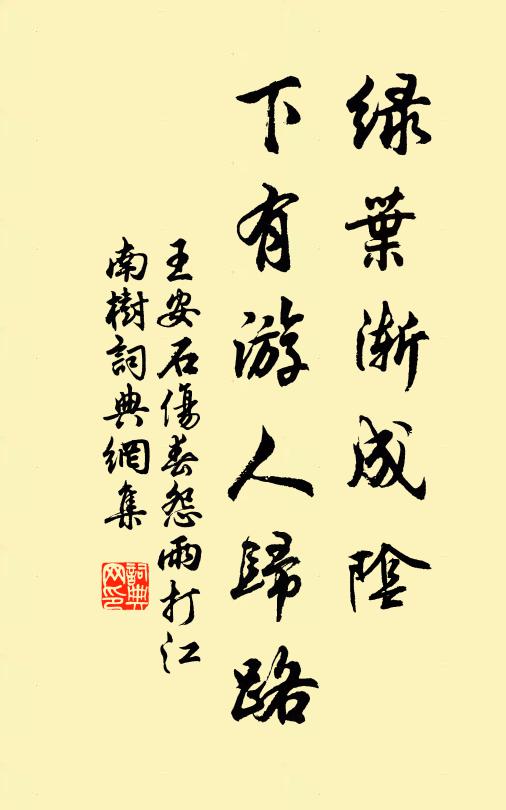 緑葉漸成陰
下有游人歸路
王安石傷春怨雨打江
南樹詞典網集
詞典
网印